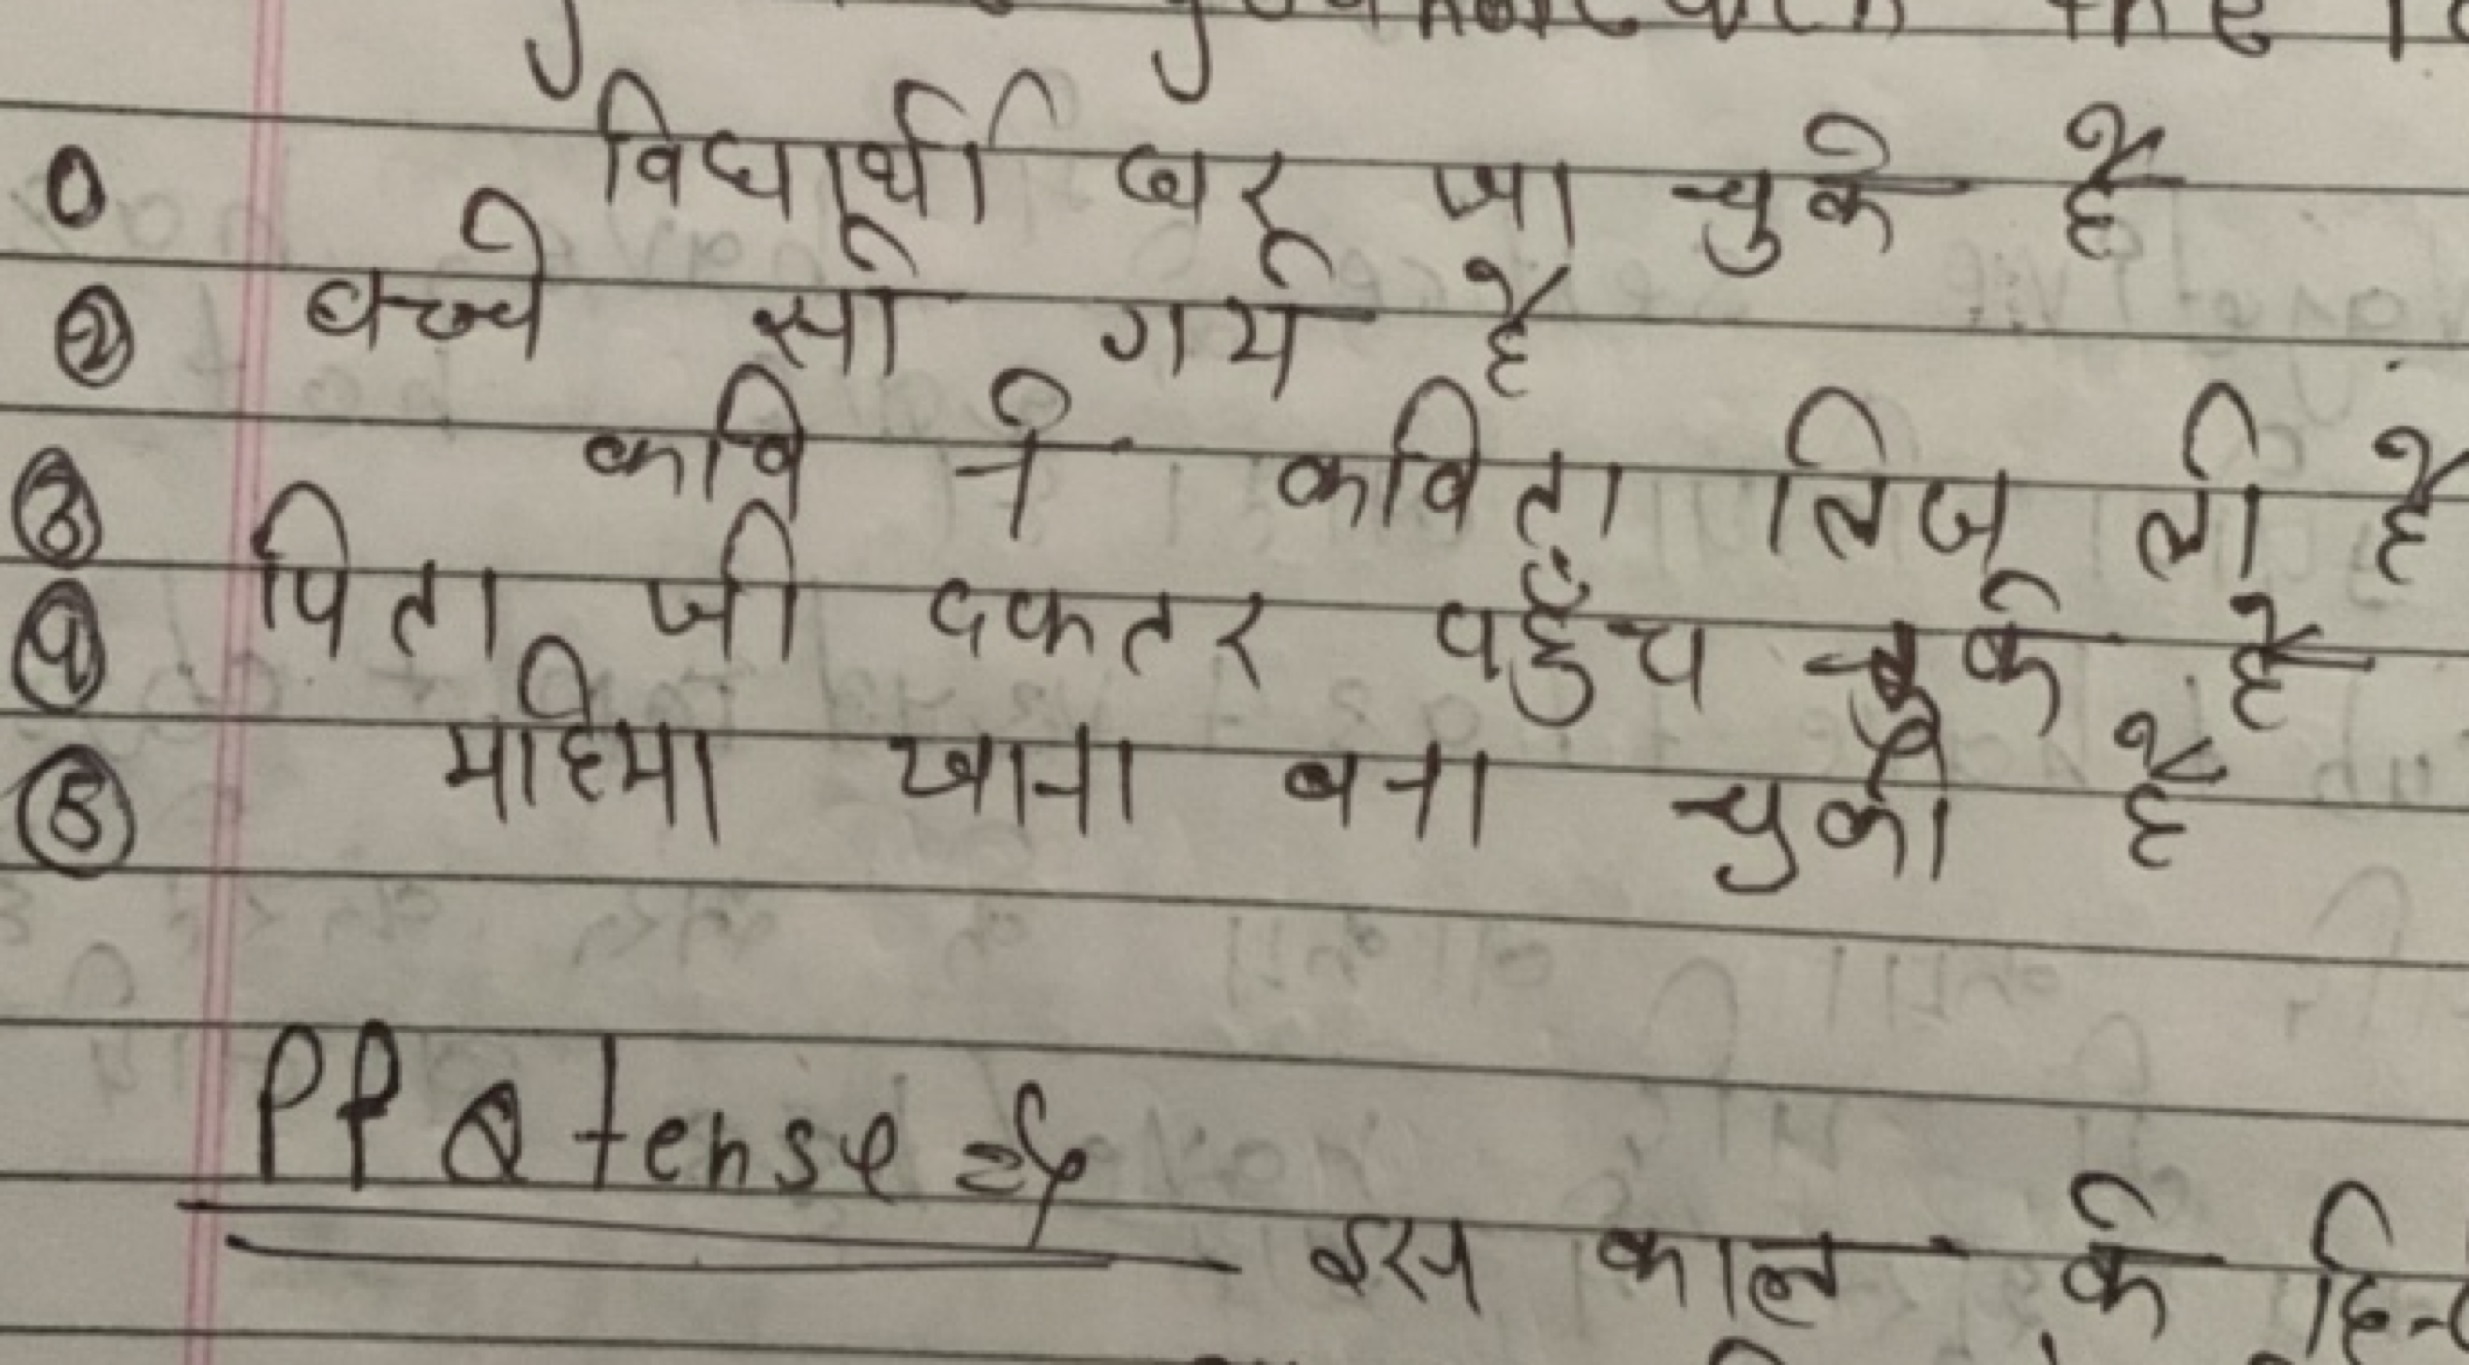 the
① विद्यार्थी घर जा चुके है
② बच्चे सो गये है
③ कवि ने कविता लिख ली है
④ पिता जी दफतर पहुँच चुके है
⑤ महिमा खाना बना चुकी है
PP tense =>
इस काल के